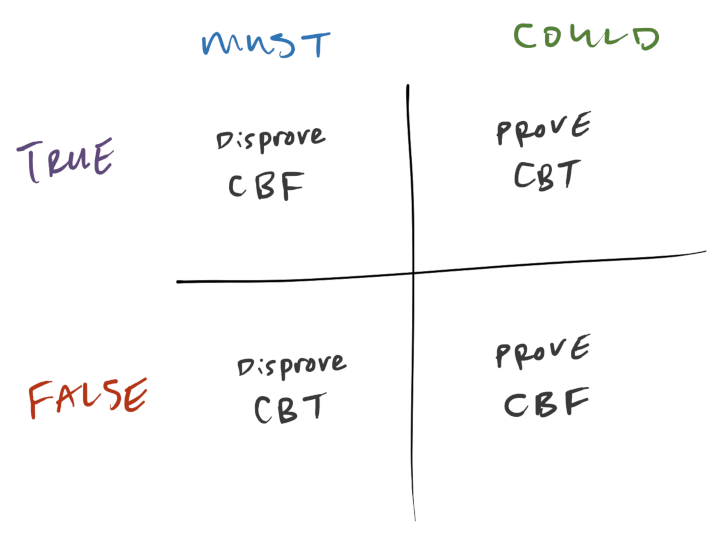 MUST COULD
TRUE
Disprove
CBF
PROVE
CBT
FALSE
Disprove
CBT
PROVE
CBF